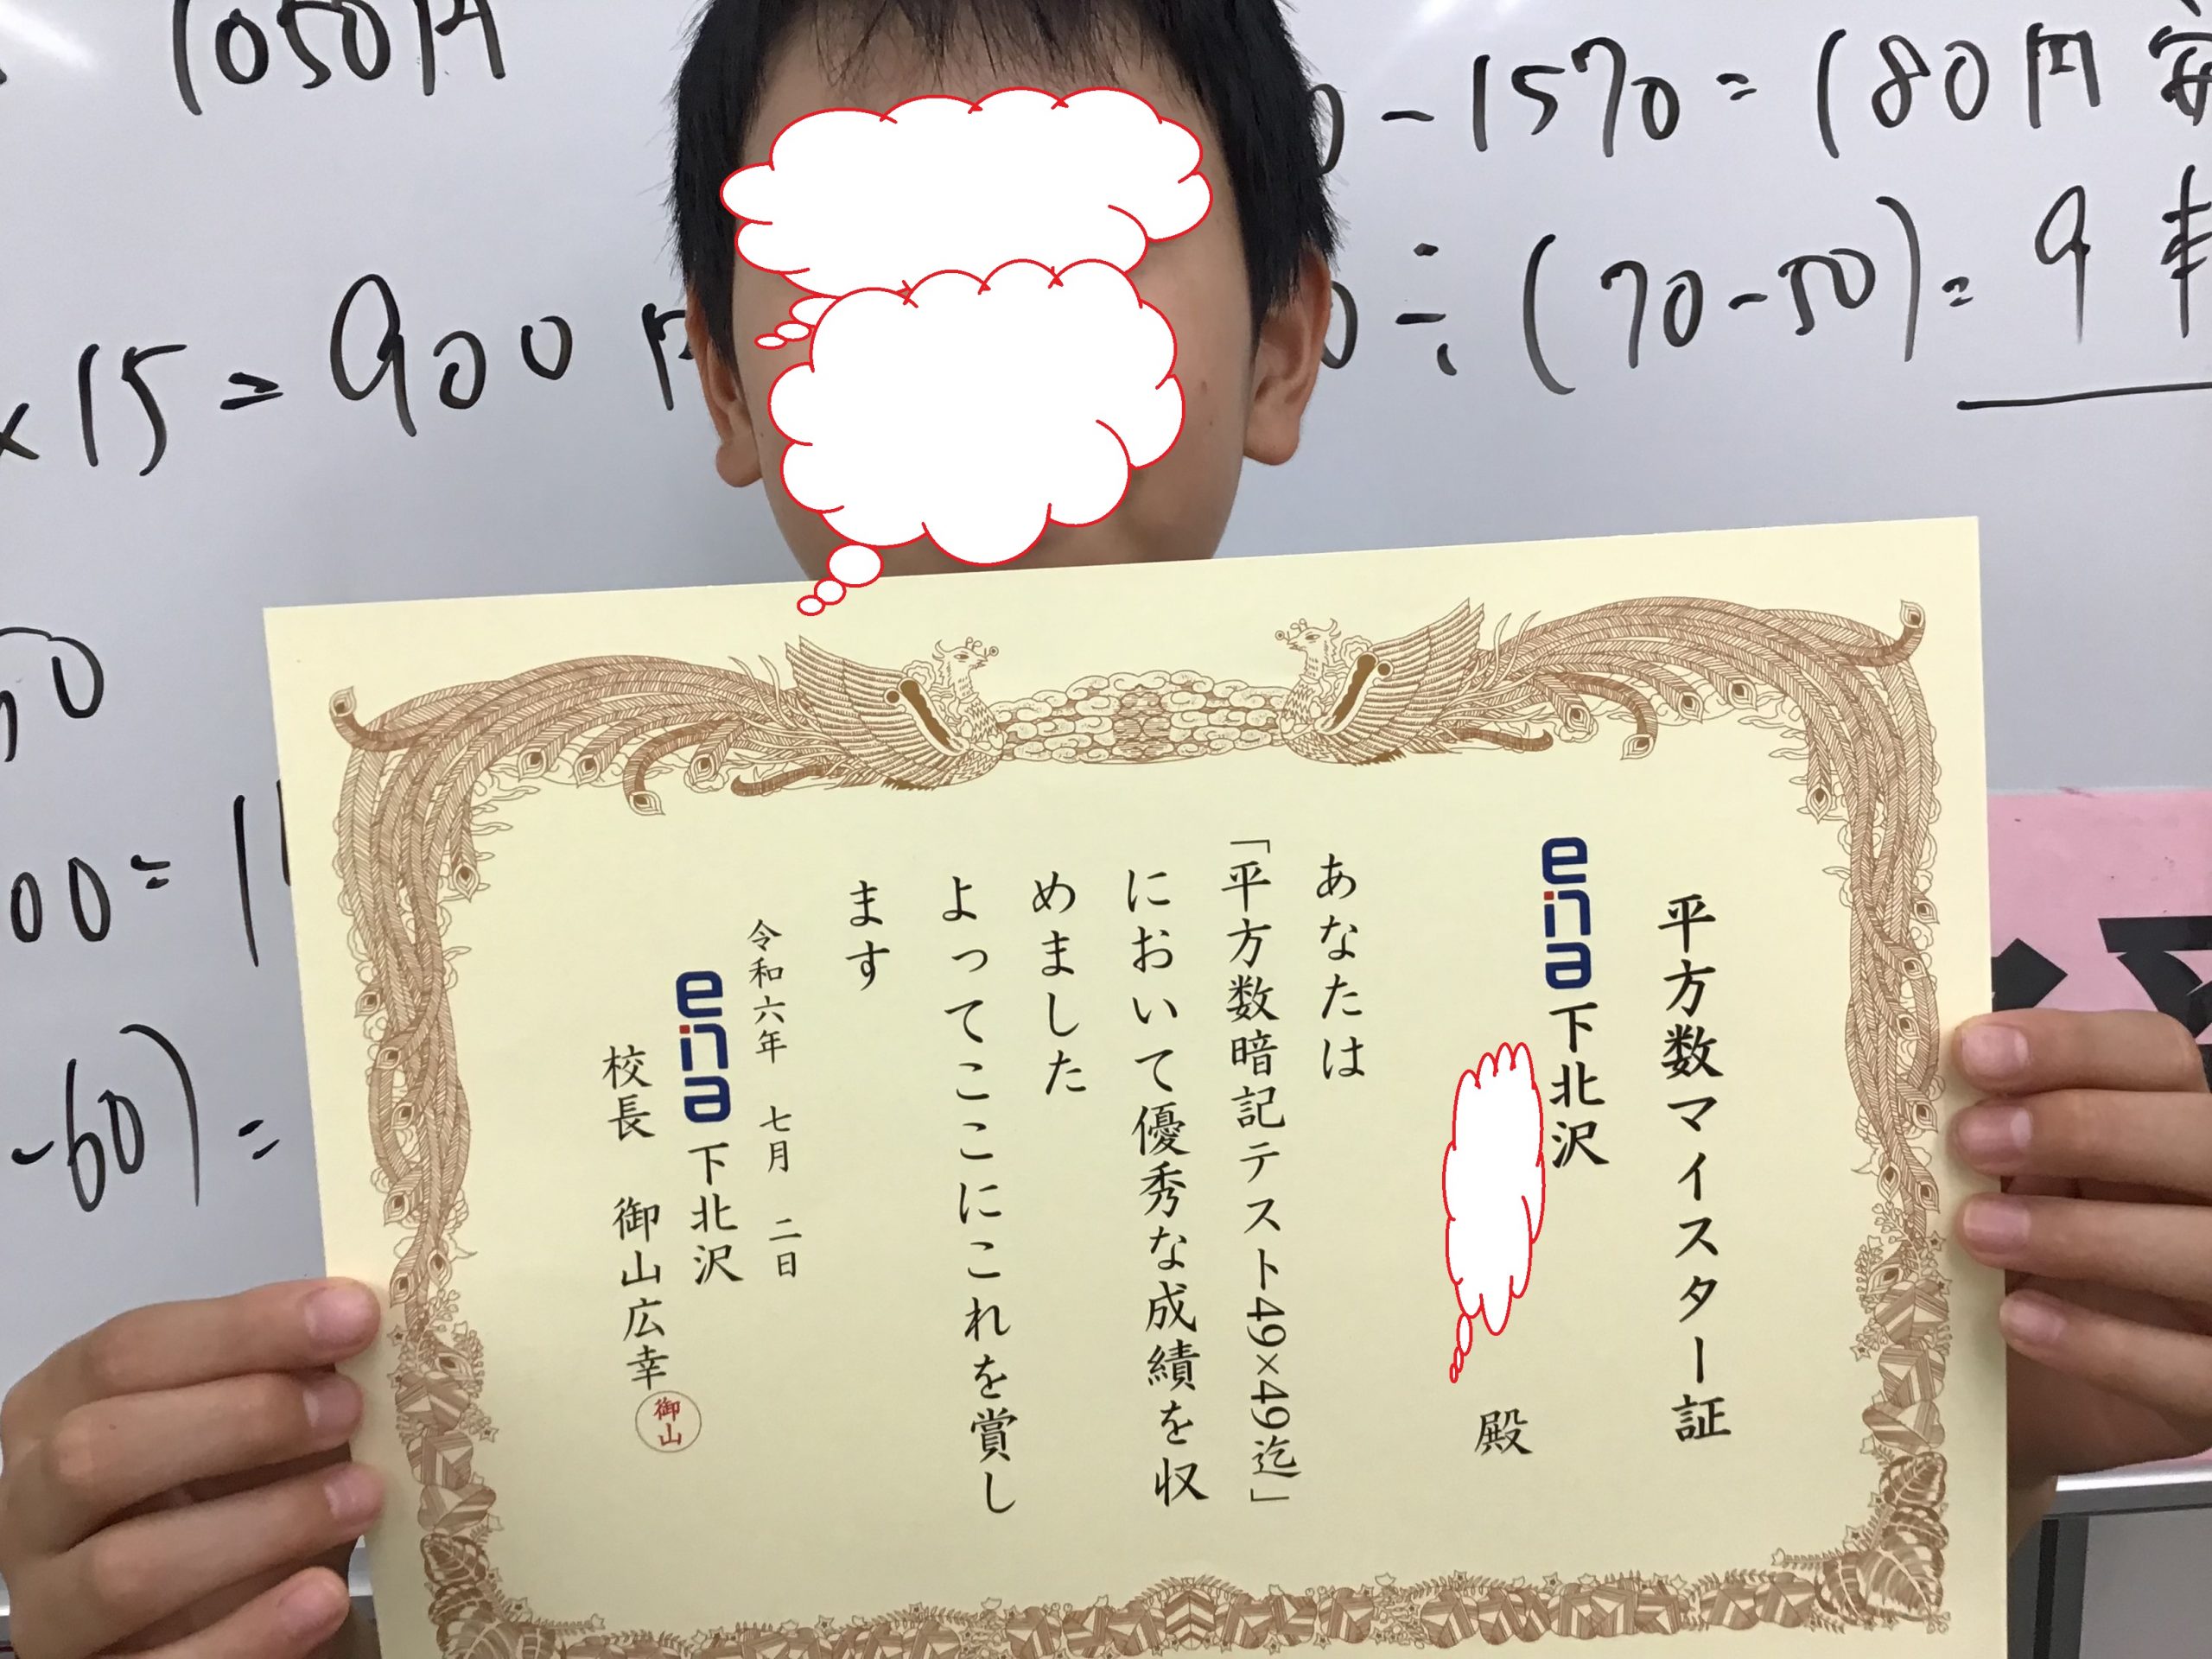 1050円
×15=900円
50
00=1
-60)=
-1570=180円安
0÷(70-50)=9本
平方数マイスター証
ena下北沢
殿
あなたは
「平方数暗記テスト49×49迄」
において優秀な成績を収
めました
よってここにこれを賞し
ます
令和六年 七月 二日
ena下北沢
校長 御山広幸
御山